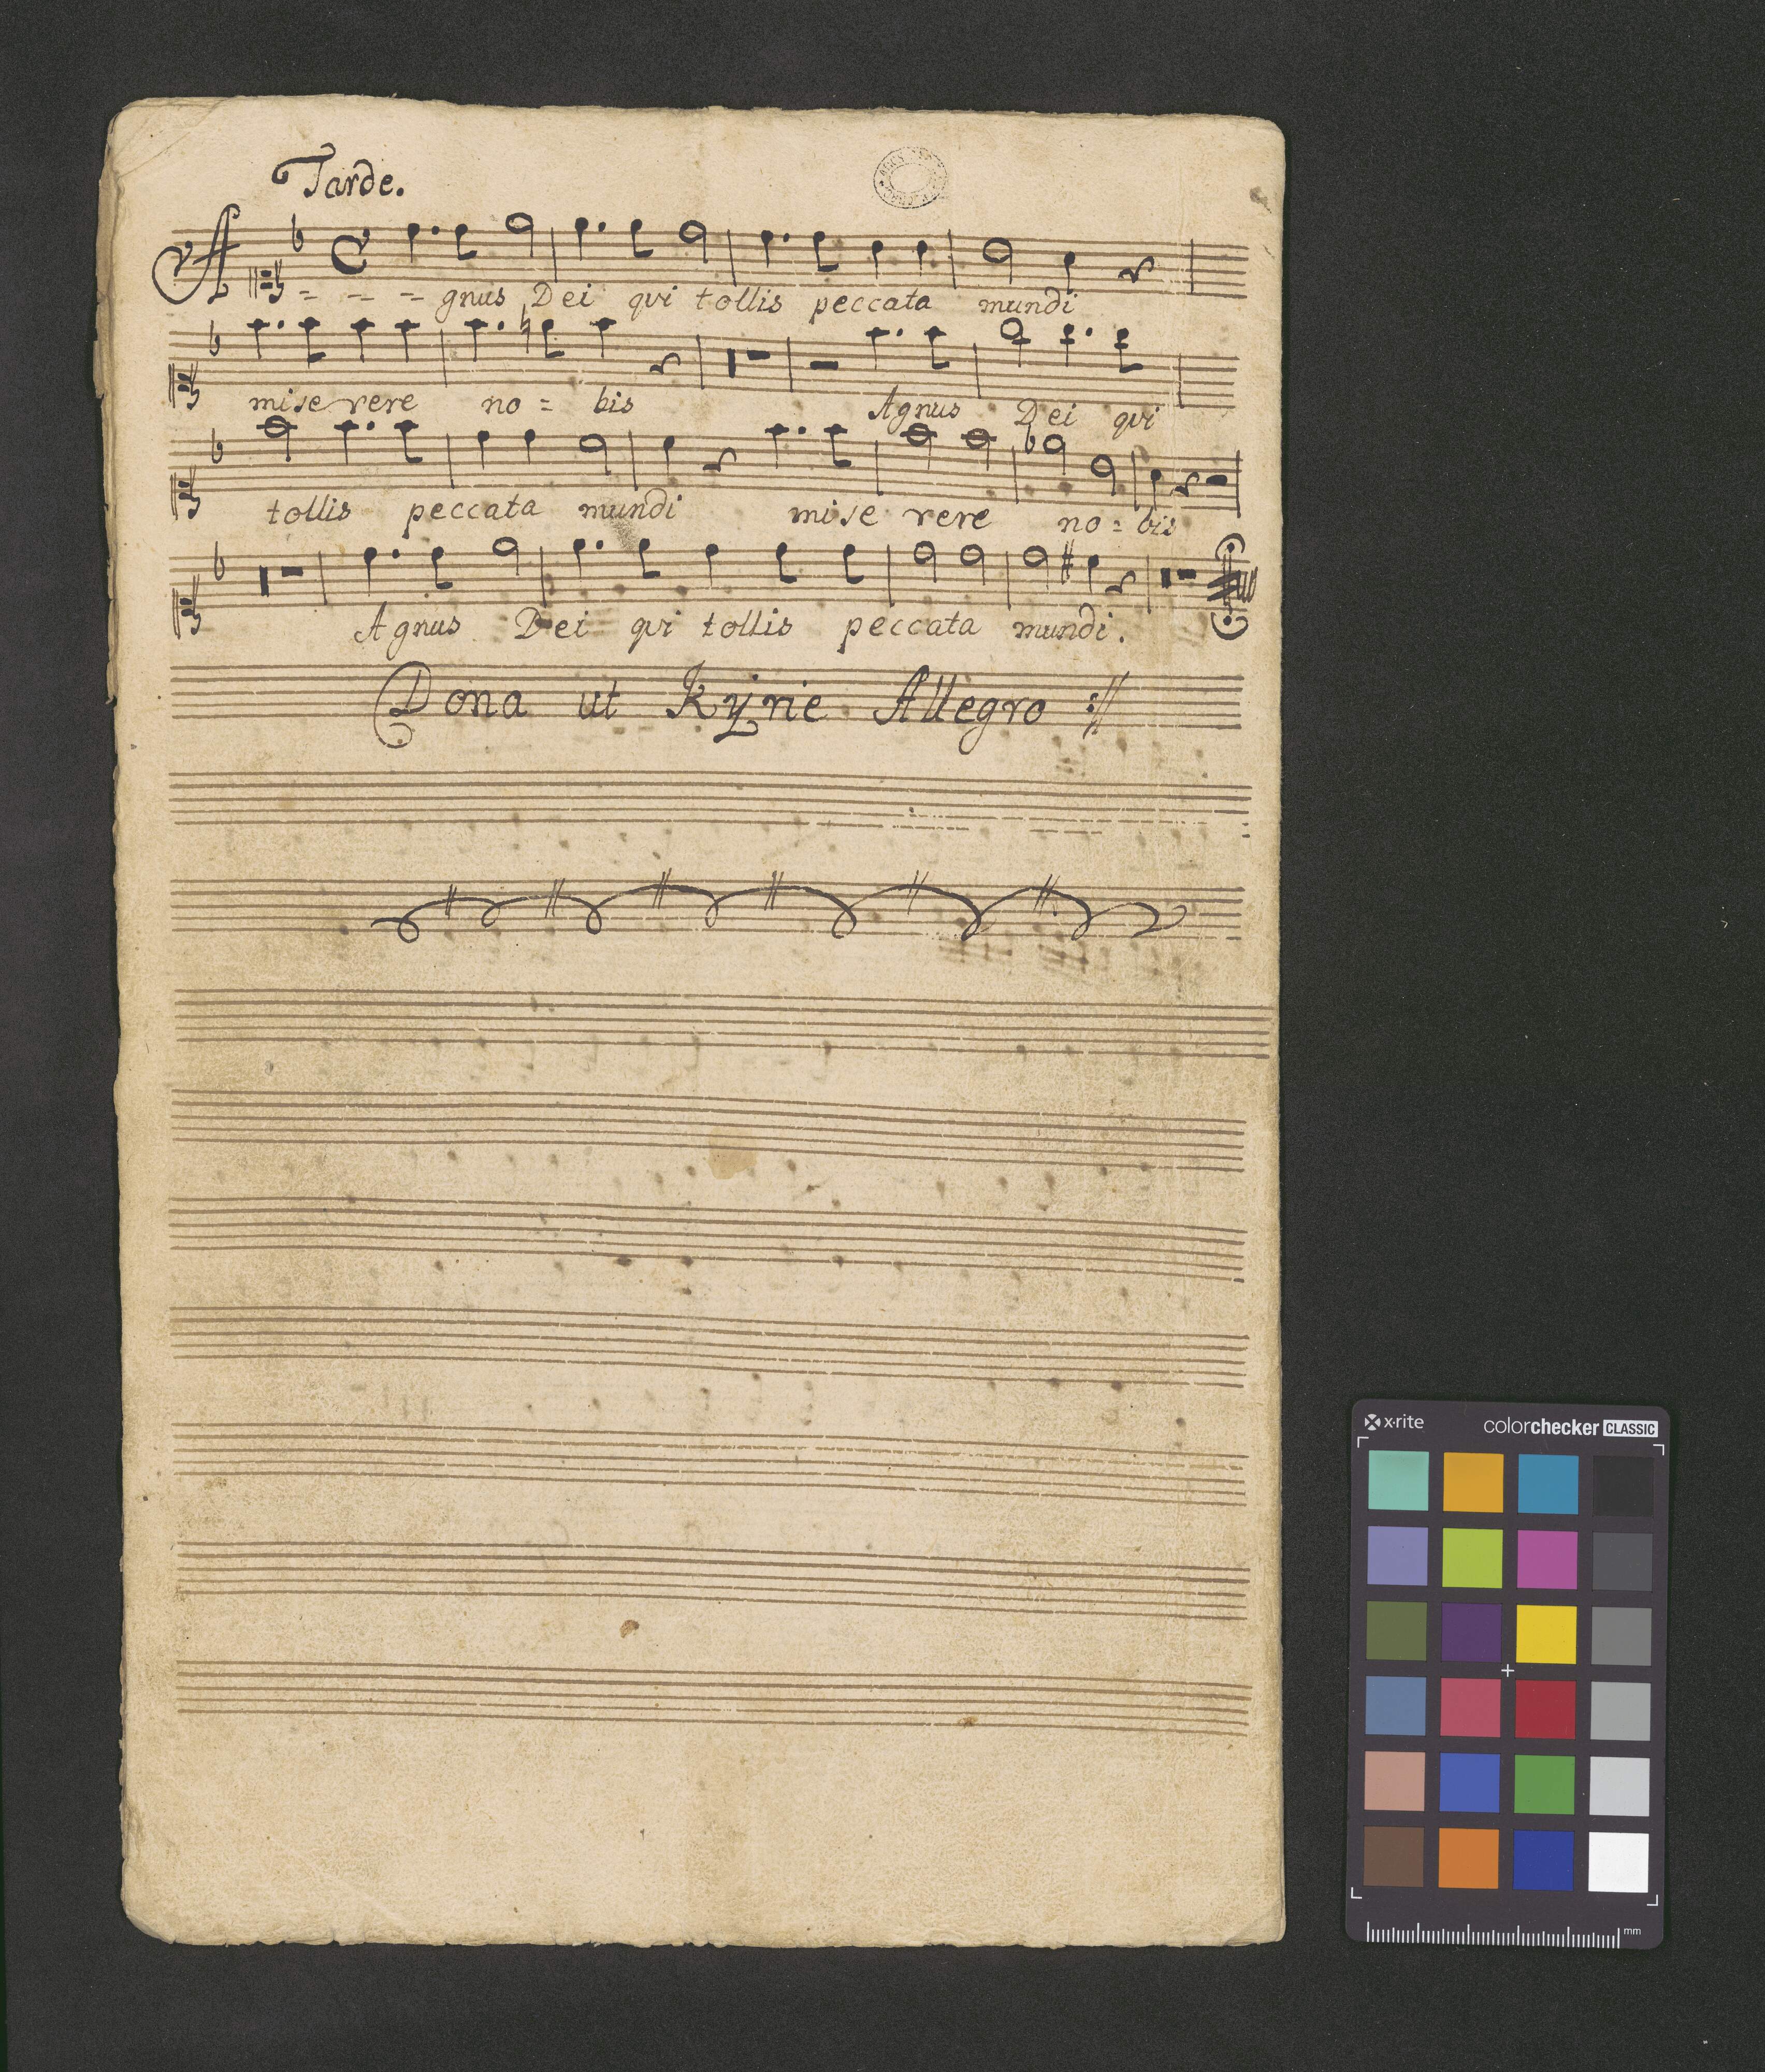 Tarde.
A - - - gnus Dei qui tollis peccata mundi
misererere no = bis Agnus Dei qui
tollis peccata mundi miserere no = bis
Agnus Dei qui tollis peccata mundi.
Dona ut Kyrie Allegro
x·rite colorchecker CLASSIC
mm